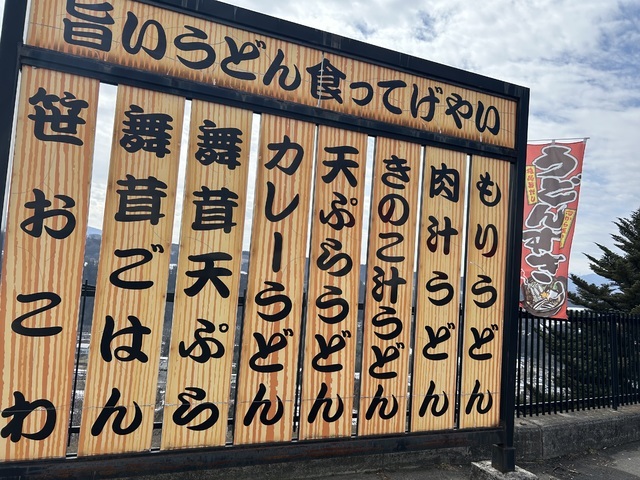 旨いうどん食ってげやい
もりうどん
肉汁うどん
きのこ汁うどん
天ぷらうどん
カレーうどん
舞茸天ぷら
舞茸ごはん
笹おこわ
うどんすき